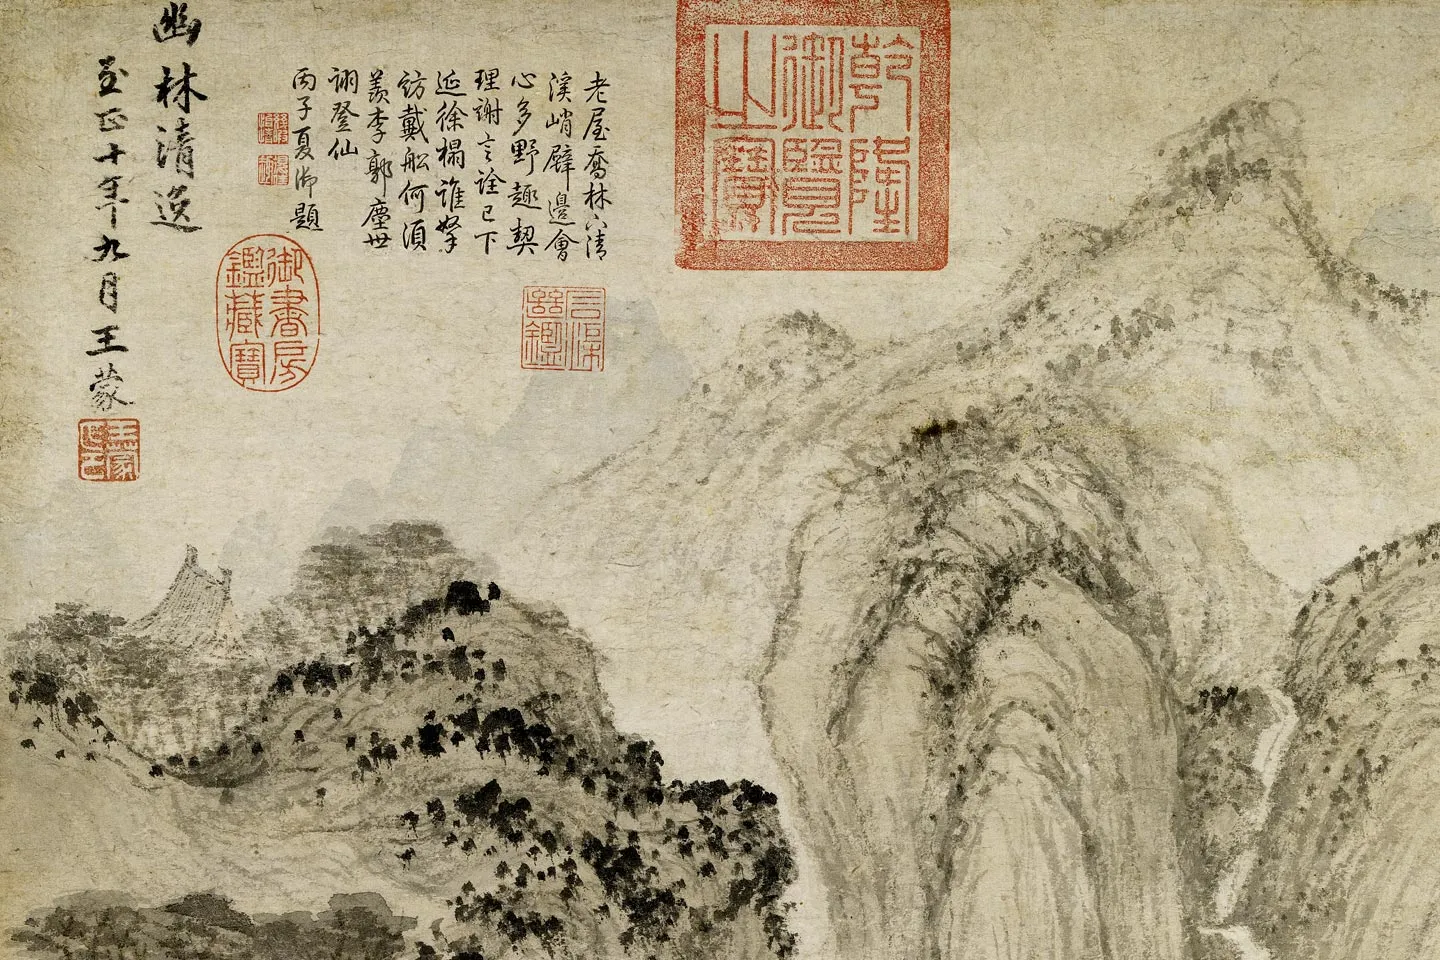 乾隆
御覽
之寶
老屋喬林下清
溪峭壁邊會
心多野趣契
理謝言詮已下
延徐榻誰拏
訪戴船何須
羨李郭塵世
詡登仙
丙子夏御題
石渠
繼鑑
御書房
鑑藏寶
幽林清逸
至正十年九月王蒙
王蒙